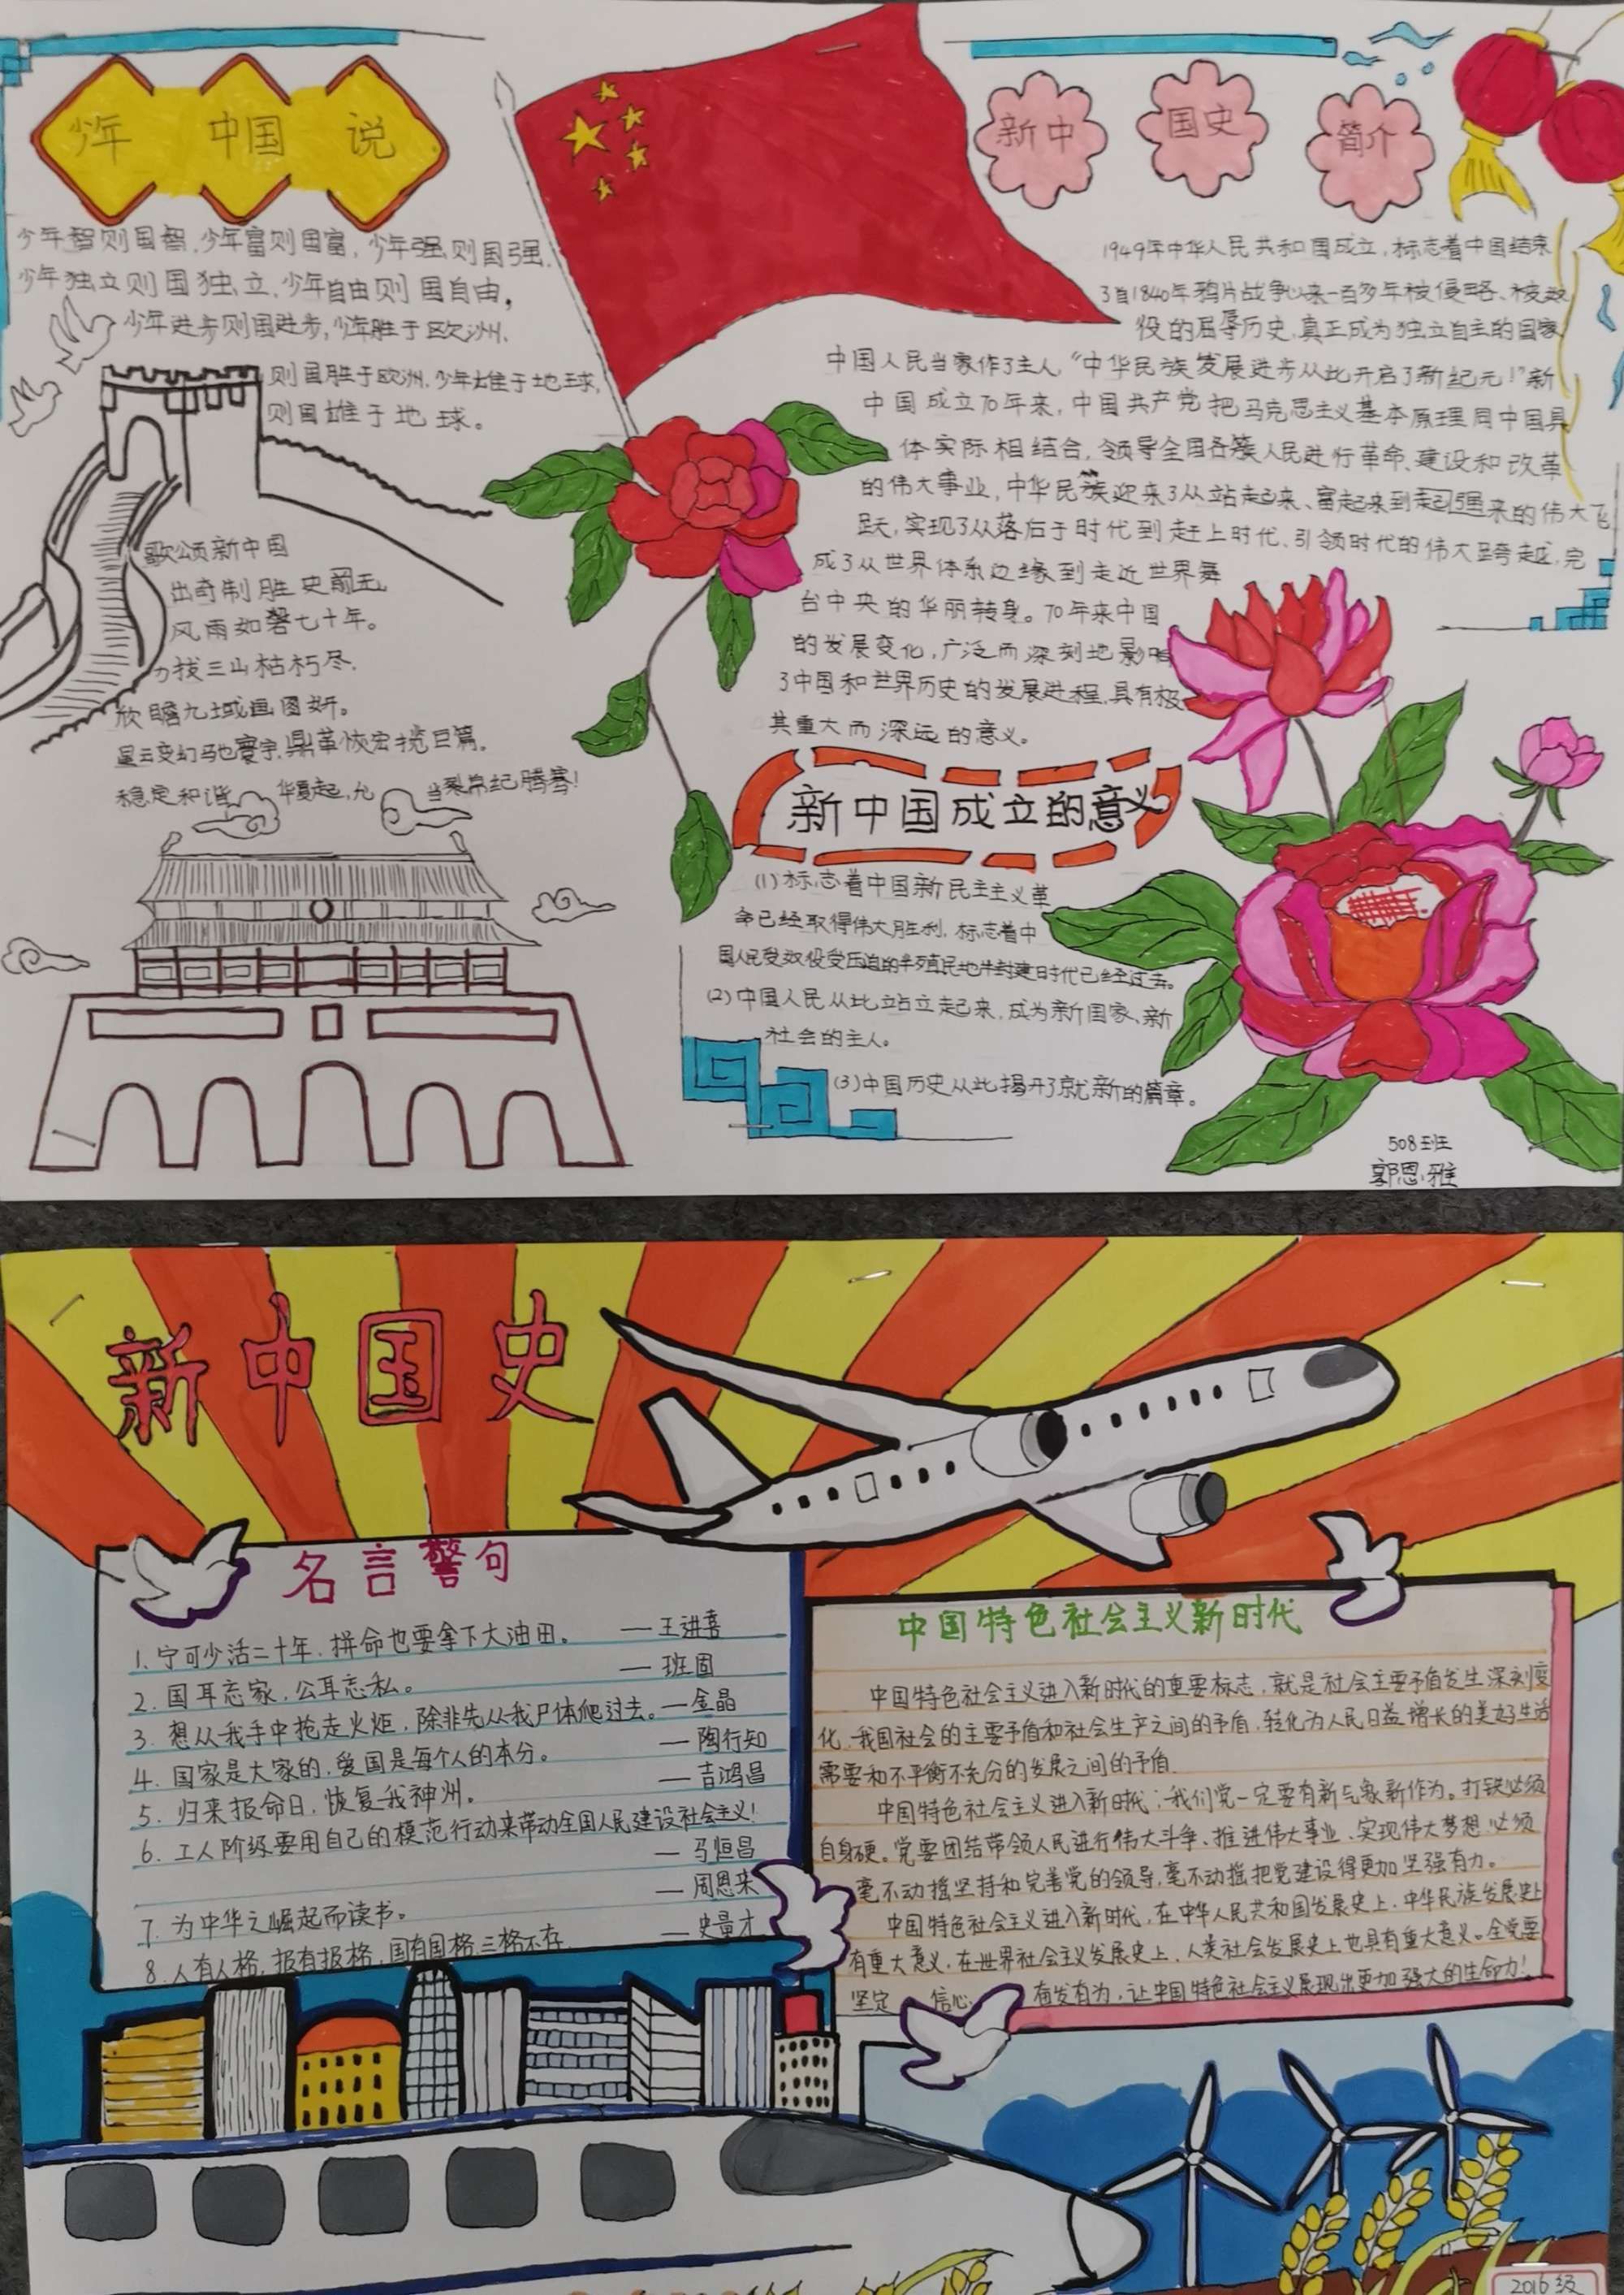 少年 中国 说
少年智则国智,少年富则国富,少年强则国强.
少年独立则国独立,少年自由则国自由,
少年进步则国进步,少年胜于欧洲,
则国胜于欧洲.少年雄于地球,
则国雄于地球。
歌颂新中国
出奇制胜史
风雨如磐七十年。
力拔三山枯朽尽.
欣瞻九域画图妍。
星云变幻驰寰宇,鼎革恢宏
稳定和谐 华夏起,允 当 纪腾骞!
新中 国史 简介
1949年中华人民共和国成立,标志着中国结束
了自1840年鸦片战争以来一百多年被侵略、被奴
役的屈辱历史,真正成为独立自主的国家
中国人民当家作了主人,“中华民族发展进步从此开启了新纪元!”新
中国成立70年来,中国共产党把马克思主义基本原理同中国具
体实际相结合,领导全国各族人民进行革命、建设和改革
的伟大事业,中华民族迎来了从站起来、富起来到强起来的伟大飞
跃,实现了从落后于时代到赶上时代、引领时代的伟大跨越,完
成了从世界体系边缘到走近世界舞
台中央的华丽转身。70年来中国
的发展变化,广泛而深刻地影响
了中国和世界历史的发展进程,具有极
其重大而深远的意义。
新中国成立的意义
(1)标志着中国新民主主义革
命已经取得伟大胜利,标志着中
国人民受奴役受压迫的半殖民地半封建时代已经过去。
(2)中国人民从此站立起来,成为新国家、新
社会的主人。
(3)中国历史从此揭开了就新的篇章。
508班
郭恩雅
新中国史
名言警句
1.宁可少活二十年,拼命也要拿下大油田。 —王进喜
2.国耳忘家,公耳忘私。 —班固
3.想从我手中抢走火炬,除非先从我尸体爬过去。—金晶
4.国家是大家的,爱国是每个人的本分。 —陶行知
5.归来报命日,恢复我神州。 —吉鸿昌
6.工人阶级要用自己的模范行动来带动全国人民建设社会主义!
—马恒昌
7.为中华之崛起而读书。 —周恩来
8.人有人格,报有报格,国有国格,三格不存 —史量才
中国特色社会主义新时代
中国特色社会主义进入新时代的重要标志,就是社会主要矛盾发生深刻变
化,我国社会的主要矛盾和社会生产之间的矛盾,转化为人民日益增长的美好生活
需要和不平衡不充分的发展之间的矛盾.
中国特色社会主义进入新时代;我们党一定要有新气象新作为。打铁必须
自身硬。党要团结带领人民进行伟大斗争、推进伟大事业、实现伟大梦想,必须
毫不动摇坚持和完善党的领导,毫不动摇把党建设得更加坚强有力。
中国特色社会主义进入新时代,在中华人民共和国发展史上、中华民族发展史上
有重大意义,在世界社会主义发展史上、人类社会发展史上也具有重大意义。全党要
坚定 信心 有发有为,让中国特色社会主义展现出更加强大的生命力!
2016级